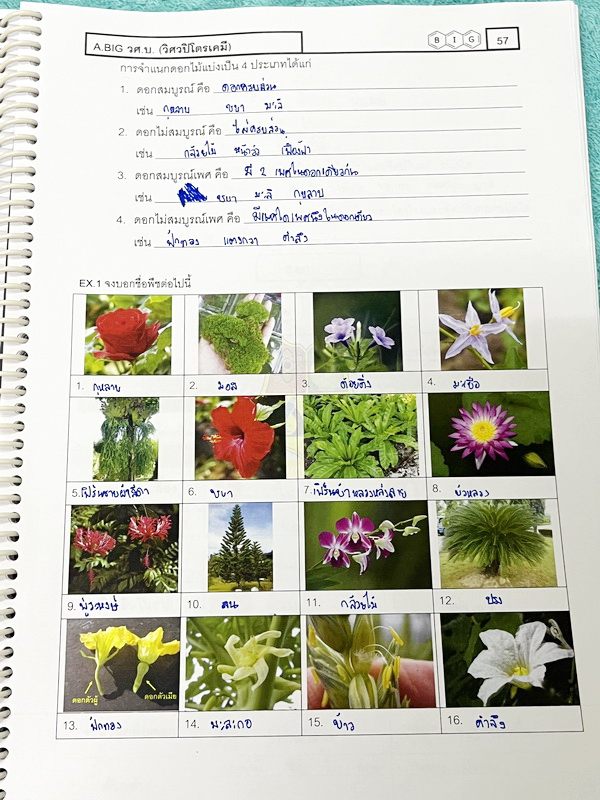 A.BIG วศ.บ. (วิศวปิโตรเคมี)
B I G
57
การจำแนกดอกไม้แบ่งเป็น 4 ประเภทได้แก่
1. ดอกสมบูรณ์ คือ ดอกครบส่วน
เช่น กุหลาบ ชบา มะลิ
2. ดอกไม่สมบูรณ์ คือ ไม่ครบส่วน
เช่น กล้วยไม้ หน้าวัว เฟื่องฟ้า
3. ดอกสมบูรณ์เพศ คือ มี 2 เพศในดอกเดียวกัน
เช่น ชบา มะลิ กุหลาบ
4. ดอกไม่สมบูรณ์เพศ คือ มีเพศใดเพศนึงในดอกเดียว
เช่น ฟักทอง แตงกวา ตำลึง
EX.1 จงบอกชื่อพืชต่อไปนี้
1. กุหลาบ
2. มอส
3. ต้อยติ่ง
4. มะเขือ
5. เฟิร์นชายผ้าสีดา
6. ชบา
7. เฟิร์นข้าหลวงหลังลาย
8. บัวหลวง
9. พู่ระหงษ์
10. สน
11. กล้วยไม้
12. ปรง
ดอกตัวผู้
ดอกตัวเมีย
13. ฟักทอง
14. มะละกอ
15. ข้าว
16. ตำลึง